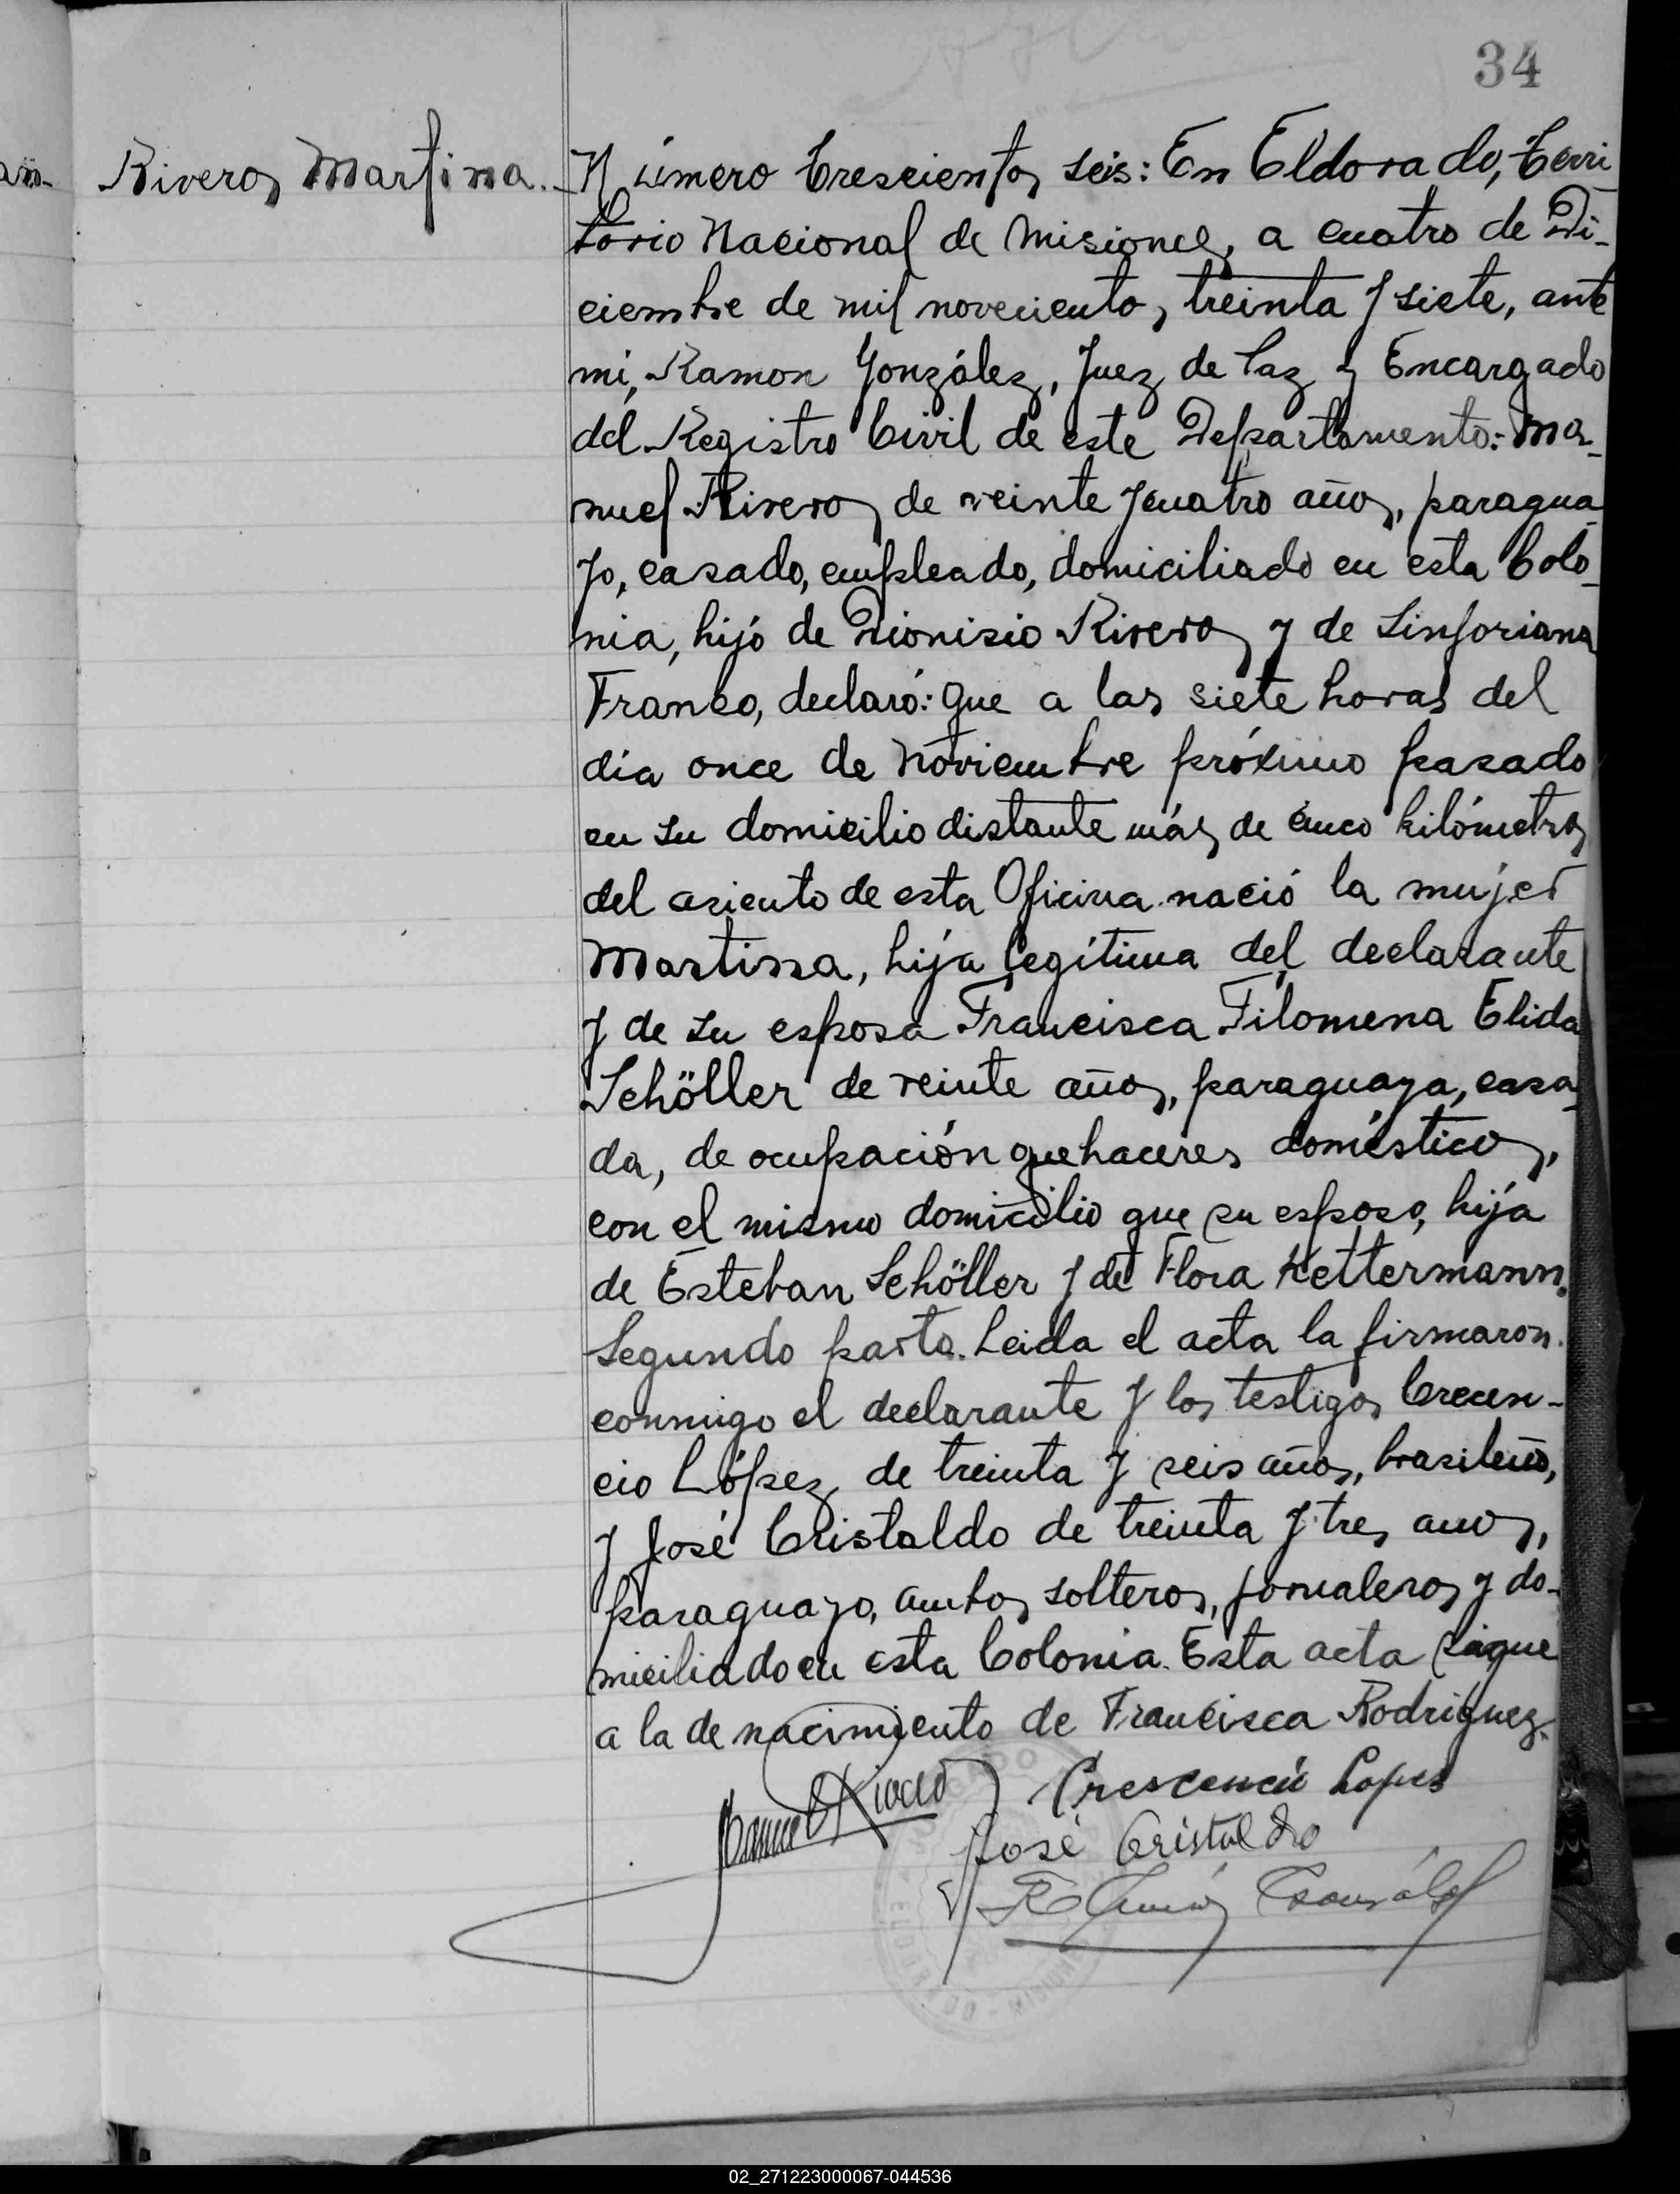 34
Riveros Martina.
Número trescientos seis: En Eldorado, Terri
torio Nacional de Misiones, a cuatro de Di-
ciembre de mil novecientos treinta y siete, ante
mi, Ramon González, Juez de Paz y Encargado
del Registro Civil de este Departamento: Ma-
nuel Riveros de veinte y cuatro años, paragua
yo, casado, empleado, domiciliado en esta Colo-
nia, hijo de Dionisio Riveros y de Sinforiana
Franco, declaró: Que a las siete horas del
día once de Noviembre próximo pasado
en su domicilio distante más de cinco kilómetros
del asiento de esta Oficina nació la mujer
Martina, hija legítima del declarante
y de su esposa Francisca Filomena Elida
Schöller de veinte años, paraguaya, casa-
da, de ocupación quehaceres domésticos,
con el mismo domicilio que su esposo, hija
de Esteban Schöller y de Flora Kettermann.
Segundo parto. Leida el acta la firmaron
conmigo el declarante y los testigos Crecen-
cio López de treinta y seis años, brasileño,
y José Cristaldo de treinta y tres años,
paraguayo, ambos solteros, jornaleros y do-
miciliado en esta Colonia. Esta acta sigue
a la de nacimiento de Francisca Rodriguez.
Manuel Riveros
Crescencio Lopes
José Cristaldo
Ramón González
02_271223000067-044536